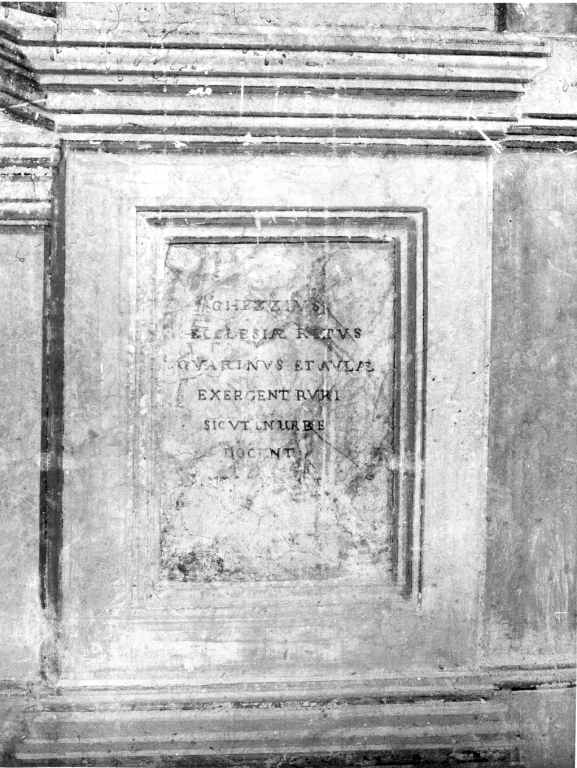 GHEZZIVS
ECCLESIÆ RETVS
GVARINVS ET AVLÆ
EXERCENT RVRI
SICVT IN URBE
DOCENT